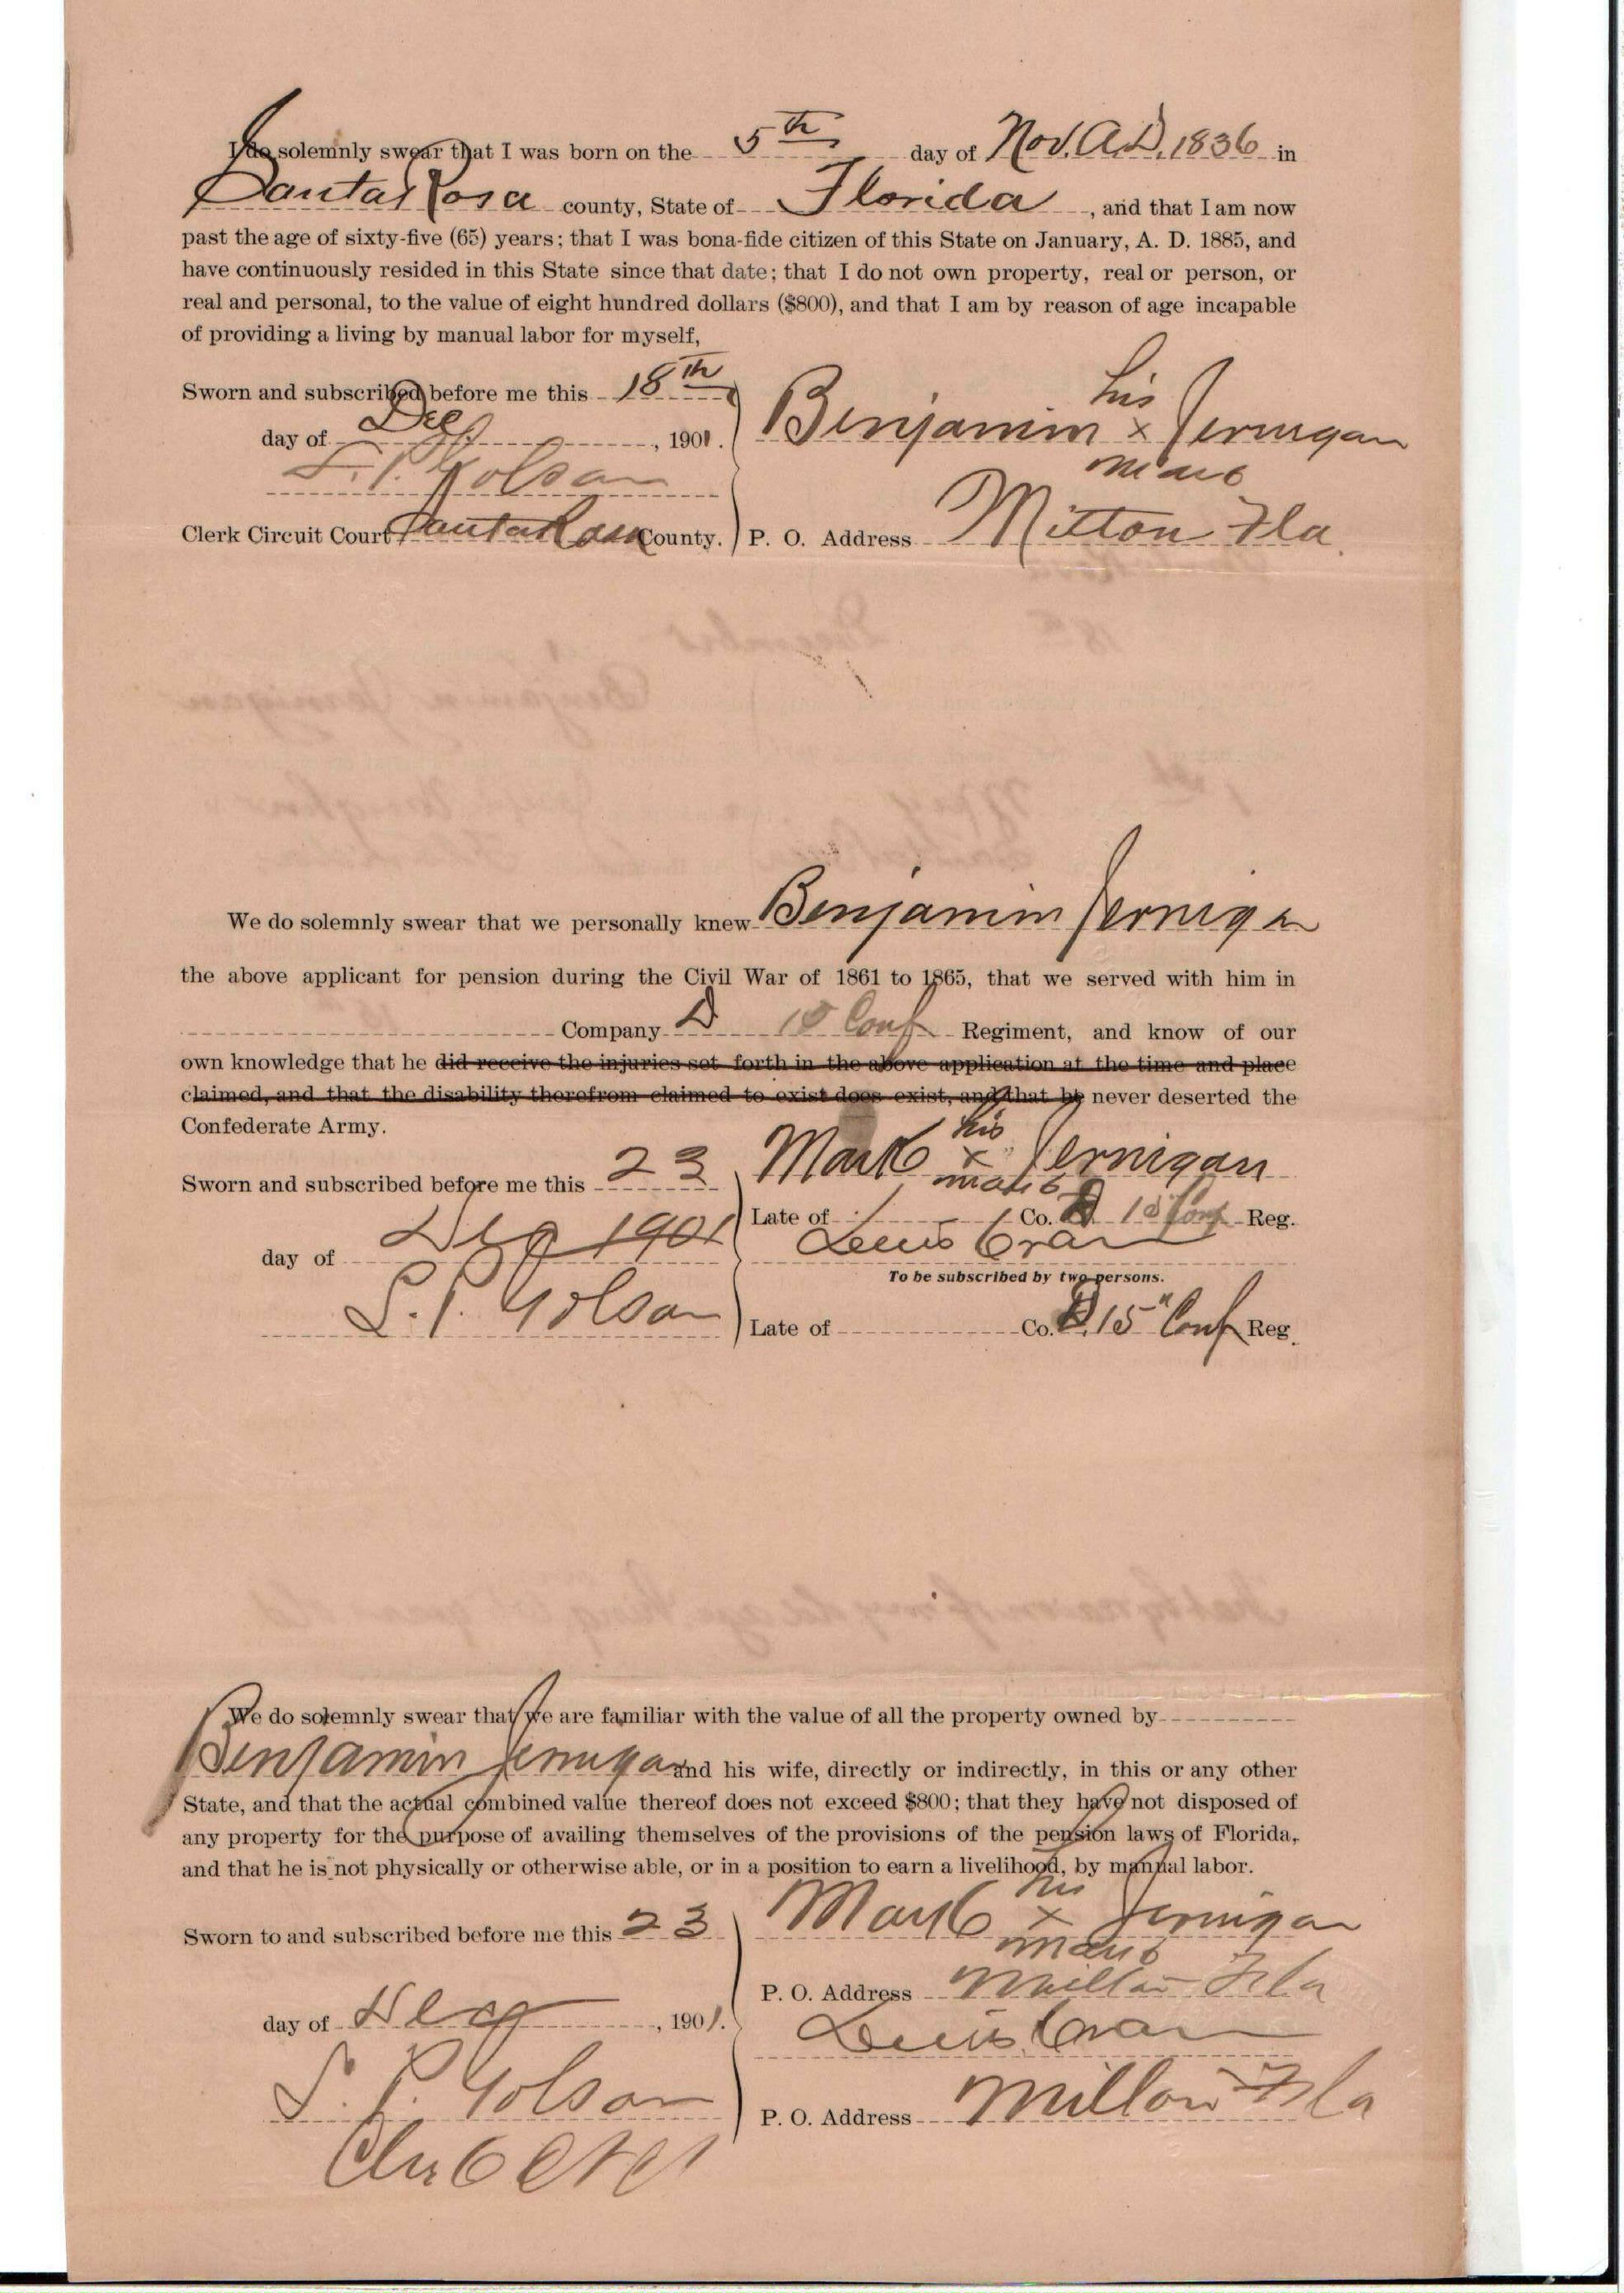 I do solemnly swear that I was born on the 5th day of Nov. A.D. 1836 in
Santa Rosa county, State of Florida, and that I am now
past the age of sixty-five (65) years; that I was bona-fide citizen of this State on January, A. D. 1885, and
have continuously resided in this State since that date; that I do not own property, real or person, or
real and personal, to the value of eight hundred dollars ($800), and that I am by reason of age incapable
of providing a living by manual labor for myself,
Sworn and subscribed before me this 18th
day of Dec, 1901.
his
Benjamin x Jernigan
mark
S. P. Golson
Clerk Circuit Court Santa Rosa County. P. O. Address Milton Fla.
We do solemnly swear that we personally knew Benjamin Jernigan
the above applicant for pension during the Civil War of 1861 to 1865, that we served with him in
Company D 15 Conf Regiment, and know of our
own knowledge that he did receive the injuries set forth in the above application at the time and place
claimed, and that the disability therefrom claimed to exist does exist, and that he never deserted the
Confederate Army.
his
Sworn and subscribed before me this 23 Mark x Jernigan
mark
Late of Co. D 15 Conf Reg.
day of Dec 1901 Lewis
To be subscribed by two persons.
S. P. Golson Late of Co. D. 15" Conf Reg.
We do solemnly swear that we are familiar with the value of all the property owned by
Benjamin Jernigan and his wife, directly or indirectly, in this or any other
State, and that the actual combined value thereof does not exceed $800; that they have not disposed of
any property for the purpose of availing themselves of the provisions of the pension laws of Florida,
and that he is not physically or otherwise able, or in a position to earn a livelihood, by manual labor.
his
Sworn to and subscribed before me this 23 Mark x Jernigan
mark
P. O. Address Milton Fla
day of Dec, 1901. Lewis
S. P. Golson P. O. Address Milton Fla